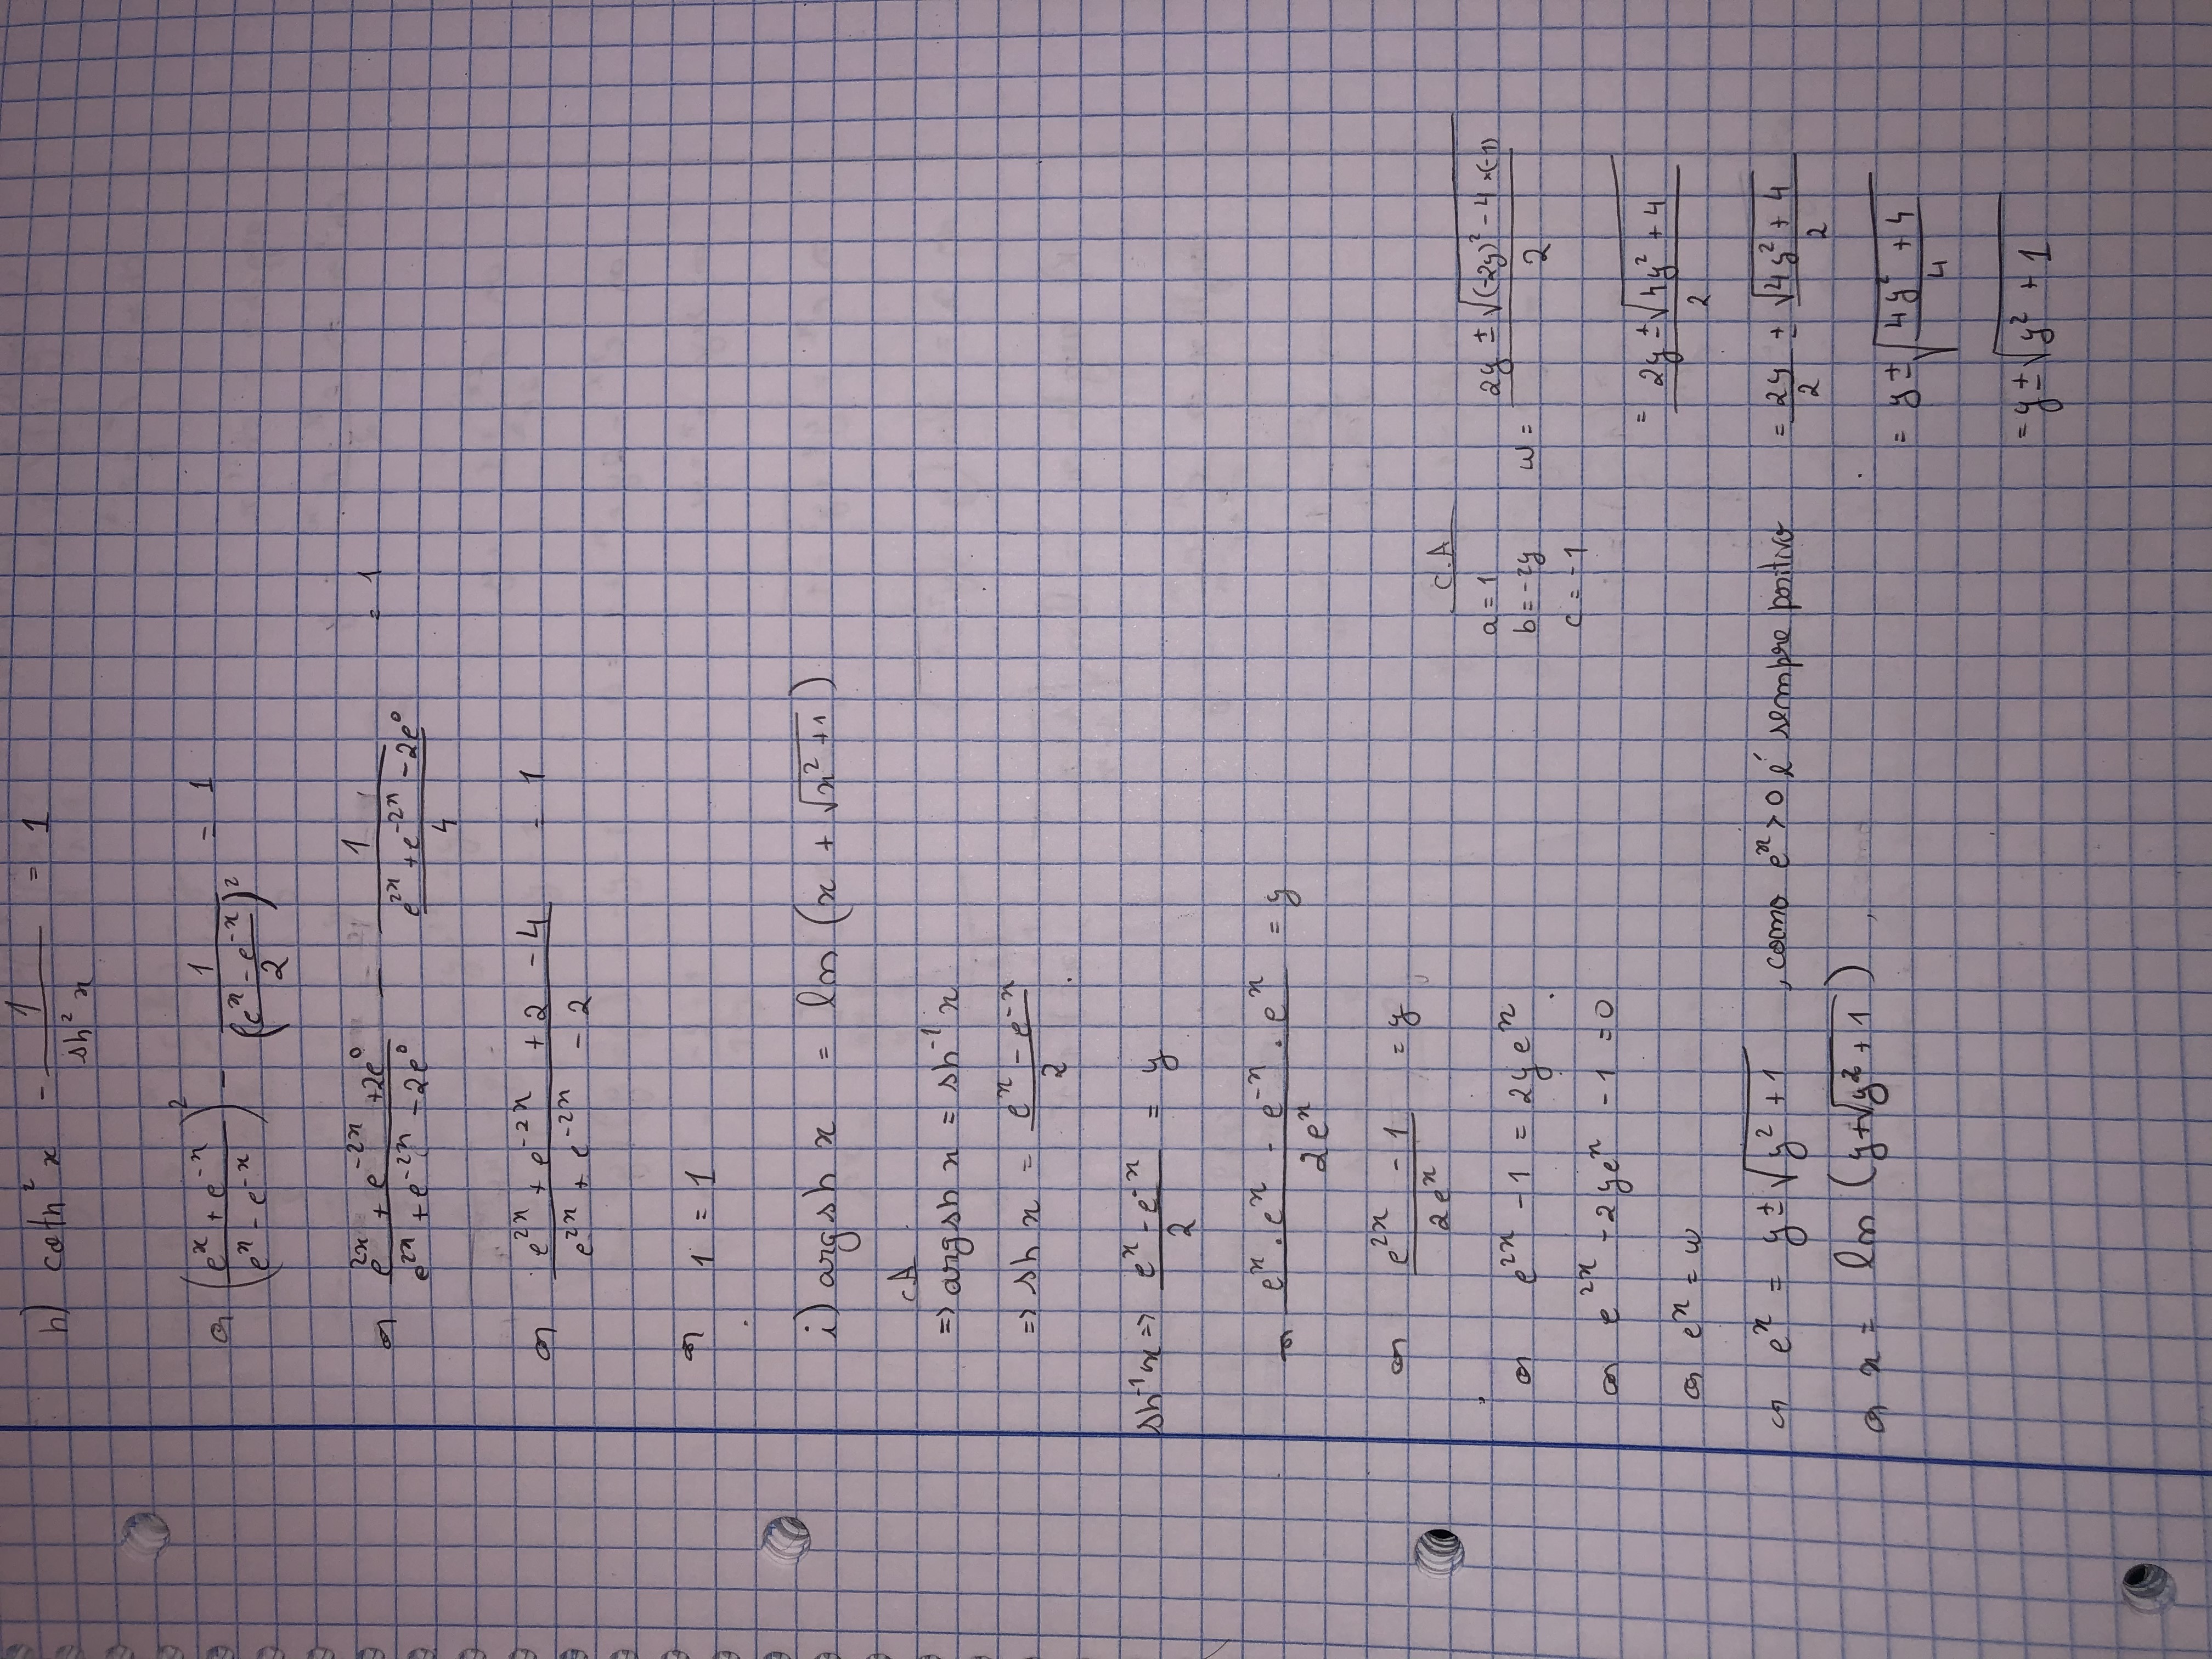 h) coth² x - 1/(sh² x) = 1
⇔ ((eˣ + e⁻ˣ)/(eˣ - e⁻ˣ))² - 1/((eˣ - e⁻ˣ)/2)² = 1
⇔ (e²ˣ + e⁻²ˣ + 2e⁰)/(e²ˣ + e⁻²ˣ - 2e⁰) - 1/((e²ˣ + e⁻²ˣ - 2e⁰)/4) = 1
⇔ (e²ˣ + e⁻²ˣ + 2 - 4)/(e²ˣ + e⁻²ˣ - 2) = 1
⇔ 1 = 1
i) argsh x = ln (x + √(x² + 1))
CA
=> argsh x = sh⁻¹ x
=> sh x = (eˣ - e⁻ˣ)/2
sh⁻¹ x => (eˣ - e⁻ˣ)/2 = y
⇔ (eˣ . eˣ - e⁻ˣ . eˣ)/(2eˣ) = y
⇔ (e²ˣ - 1)/(2eˣ) = y
⇔ e²ˣ - 1 = 2yeˣ
⇔ e²ˣ - 2yeˣ - 1 = 0
⇔ eˣ = w
⇔ eˣ = y ± √(y² + 1) , como eˣ > 0 é sempre positivo
⇔ x = ln (y + √(y² + 1)) ,
C.A
a = 1
b = -2y
c = -1
w = (2y ± √((-2y)² - 4 × (-1)))/2
= (2y ± √(4y² + 4))/2
= 2y/2 ± √(4y² + 4)/2
= y ± √((4y² + 4)/4)
= y ± √(y² + 1)